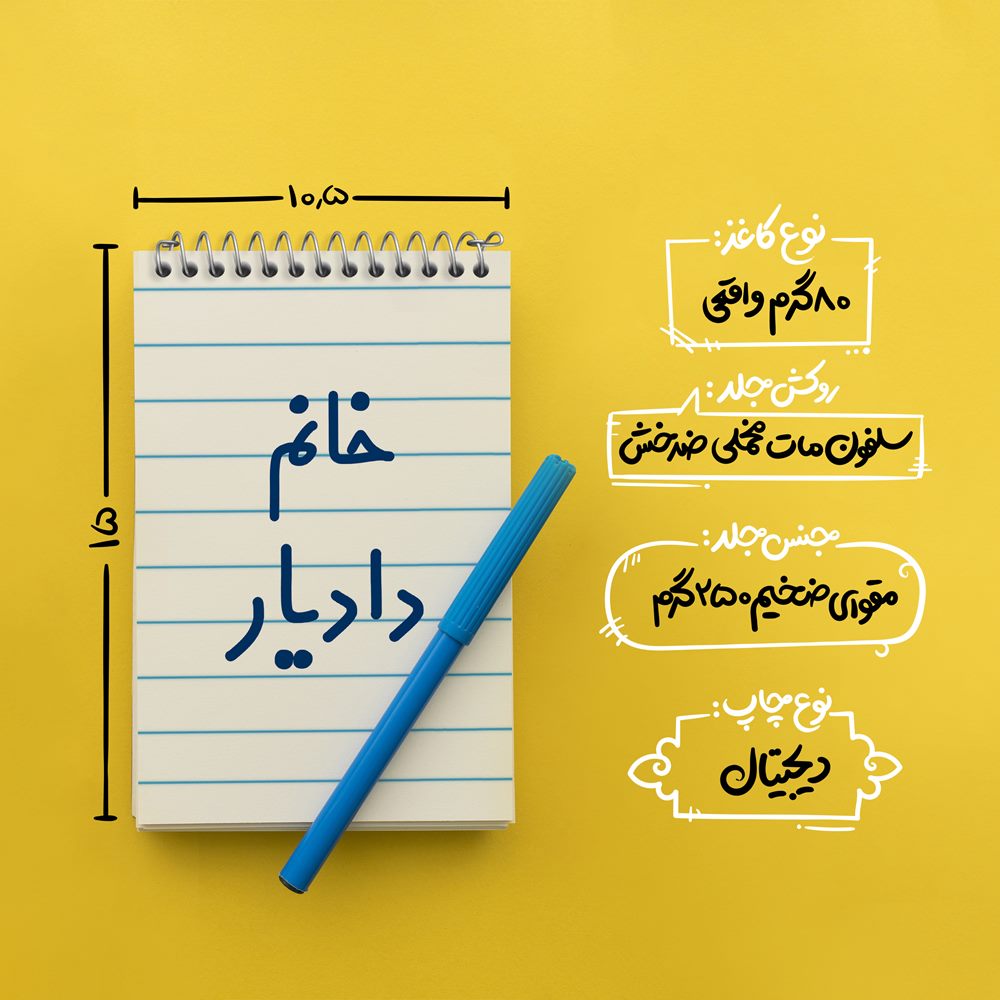 ۱۰٫۵
۱۵
خانم
دادیار
نوع کاغذ:
۸۰ گرم واقعی
روکش جلد:
سلفون مات مخملی ضدخش
جنس جلد:
مقوای ضخیم ۲۵۰ گرم
نوع چاپ:
دیجیتال